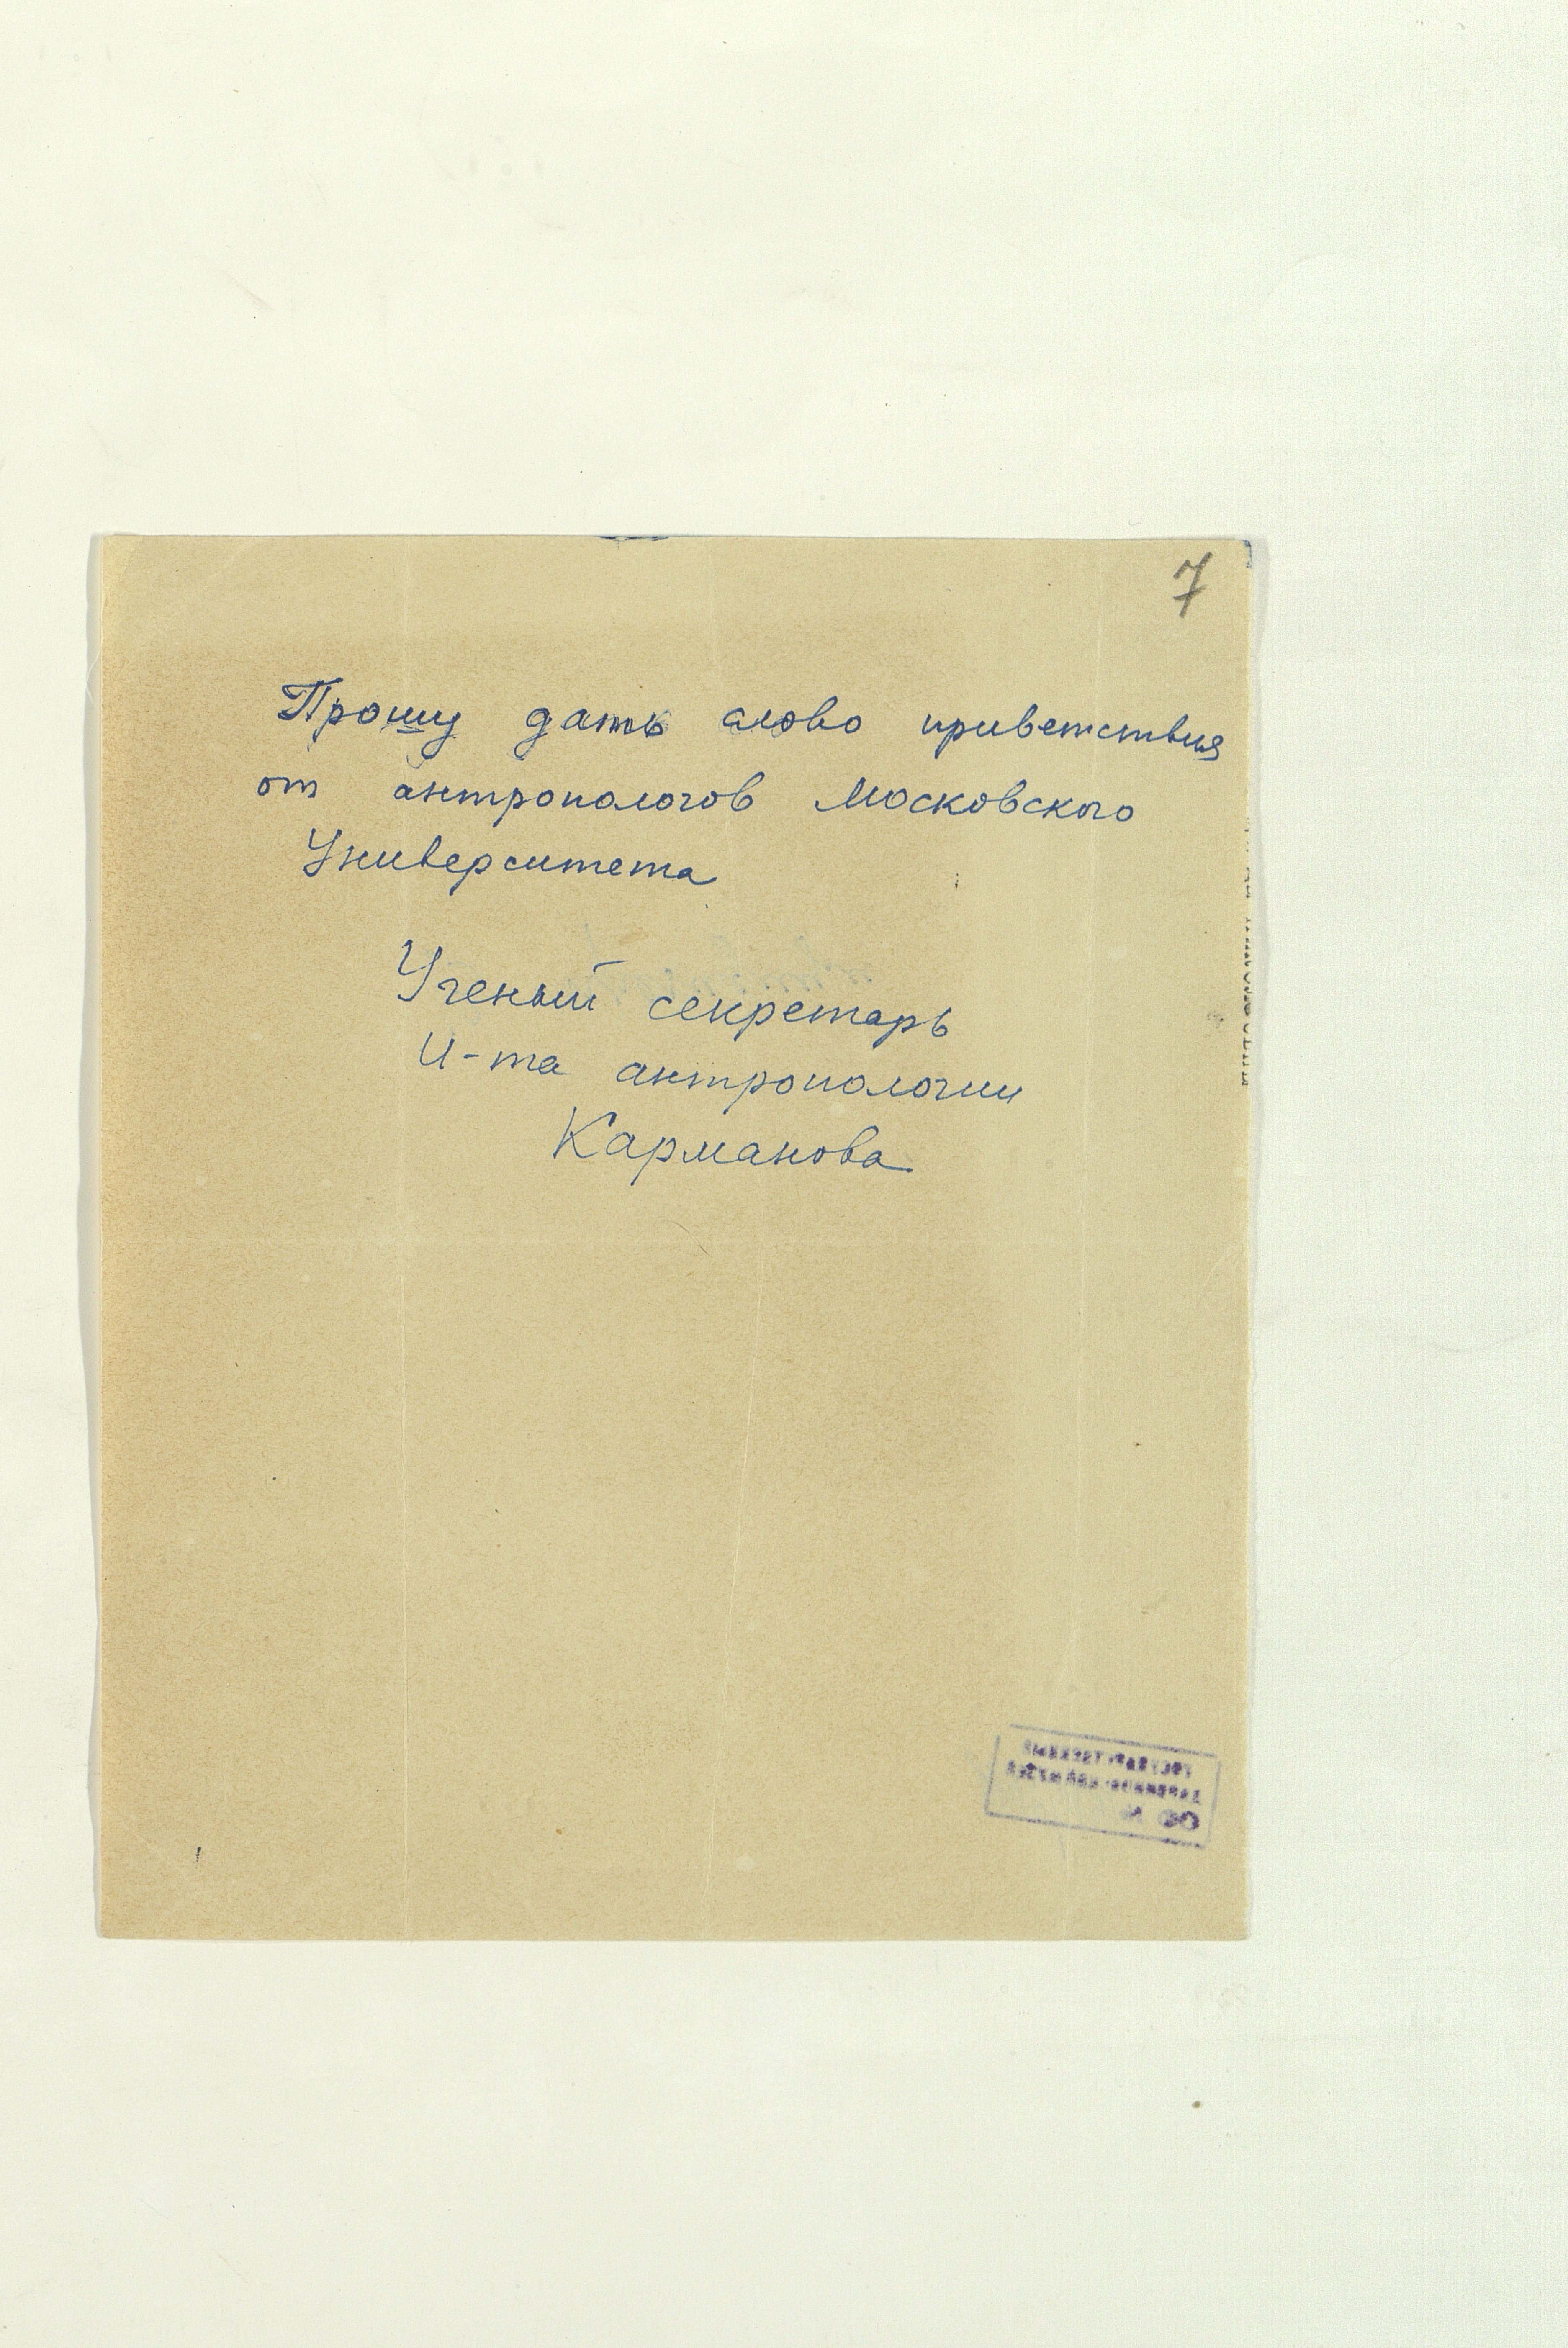 7
Прошу дать слово приветствия
от антропологов Московского
Университета
Ученый секретарь
И-та антропологии
Карманова